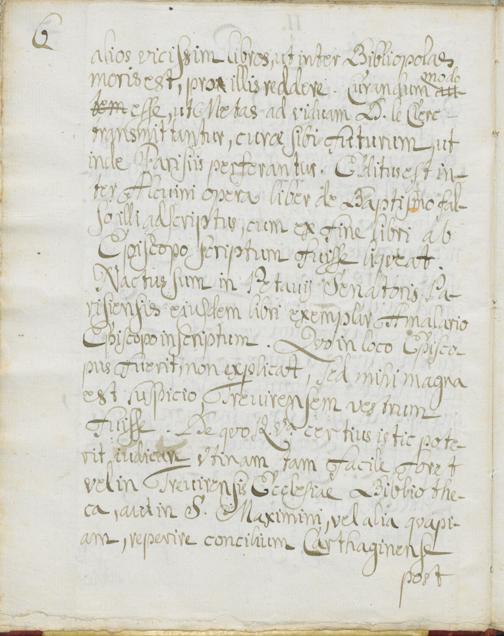 6
alios vicissim libros, ut inter Bibliopolas
moris est, pro illis reddere. Curandum modo
esse, ut Metas ad viduam D. le Clerc
transmittantur, curæ sibi futurum, ut
inde Parisiis perferantur. Editus est in-
ter Alcuini opera liber de Baptismo fal-
so illi adscriptus, cum ex fine libri ab
Episcopo scriptum fuisse liqueat.
Nactus sum in Petavij Senatoris Pa-
risiensis eiusdem libri exemplar Amalario
Episcopo inscriptum. Quo in loco Episco-
pus fuerit non explicat, sed mihi magna
est suspicio Trevirensem vestrum
fuisse. De quo R. Vra certius istic pote-
rit iudicare. Utinam tam facile foret
vel in Trevirensis Ecclesiæ Bibliothe-
ca, aut in S. Maximini, vel alia quapi-
am, reperire concilium Carthaginense
post